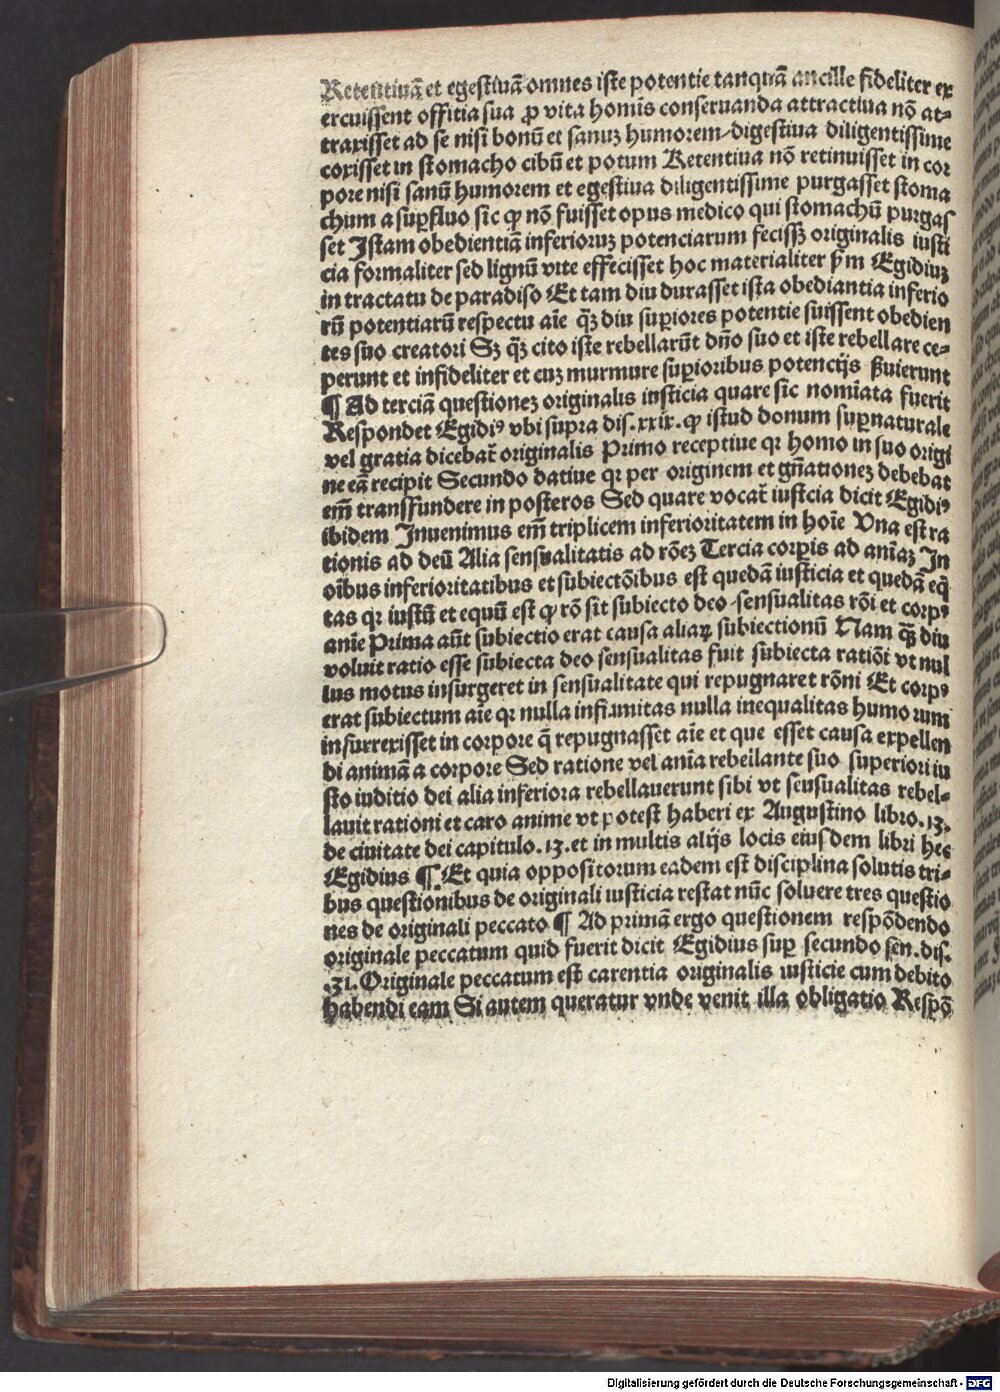 Retentiuā et egestiuā omnes iste potentie tanquā ancille fideliter ex
ercuissent offitia sua ꝓ vita homīs conseruanda attractiua nō at⸗
traxisset ad se nisi bonū et sanuꝫ humorem/digestiua diligentissime
coxisset in stomacho cibū et potum Retentiua nō retinuisset in cor
pore nisi sanū humorem et egestiua diligentissime purgasset stoma
chum a suꝑfluo sic ꝙ nō fuisset opus medico qui stomachū purgas
set Istam obedientiā inferioruꝫ potenciarum fecissꝫ originalis iusti
cia formaliter sed lignū vite effecisset hoc materialiter ẜm Egidiuꝫ
in tractatu de paradiso Et tam diu durasset ista obediantia inferio
rū potentiarū respectu aīe q̄ꝫ diu suꝑiores potentie suissent obedien
tes suo creatori Sꝫ q̄ꝫ cito iste rebellarūt dn̄o suo et iste rebellare ce⸗
perunt et infideliter et cuꝫ murmure suꝑioribus potencijs ẜuierunt
¶ Ad terciā questioneꝫ originalis insticia quare sic nomīata fuerit
Respondet Egidiꝰ vbi supra dis.xxix.ꝙ istud donum suꝑnaturale
vel gratia dicebat᷑ originalis Primo receptiue qꝛ homo in suo origi
ne eā recipit Secundo datiue qꝛ per originem et gn̄ationeꝫ debebat
em̄ transfundere in posteros Sed quare vocat᷑ iustcia dicit Egidiꝰ
ibidem Inuenimus em̄ triplicem inferioritatem in hoīe Vna est ra
tionis ad deū Alia sensualitatis ad rōeꝫ Tercia corꝑis ad aniāꝫ In
oībus inferioritatibus et subiectōibus est quedā iusticia et quedā eq̄
tas qꝛ iustū et equū est ꝙ rō sit subiecto deo/sensualitas rōi et corpꝰ
anīe Prima aūt subiectio erat causa aliaꝝ subiectionū Nam q̄ꝫ diu
voluit ratio esse subiecta deo sensualitas fuit subiecta ratiōi vt nul
lus motus insurgeret in sensualitate qui repugnaret rōni Et corpꝰ
erat subiectum aīe qꝛ nulla infirmitas nulla inequalitas humorum
insurrexisset in corpore q̄ repugnasset aīe et que esset causa expellen
di animā a corpore Sed ratione vel anīa rebellante suo superiori iu
sto iuditio dei alia inferiora rebellauerunt sibi vt sensualitas rebel⸗
lauit rationi et caro anime vt potest haberi ex Augustino libro.13.
de ciuitate dei capitulo.13.et in multis alijs locis eiusdem libri hec
Egidius ¶ Et quia oppositorum eadem est disciplina solutis tri⸗
bus questionibus de originali iusticia restat nūc soluere tres questio
nes de originali peccato ¶ Ad primā ergo questionem respōdendo
originale peccatum quid fuerit dicit Egidius suꝑ secundo sen.dis.
.31.Originale peccatum est carentia originalis iusticie cum debito
habendi eam Si autem queratur vnde venit illa obligatio Respō
Digitalisierung gefördert durch die Deutsche Forschungsgemeinschaft - DFG